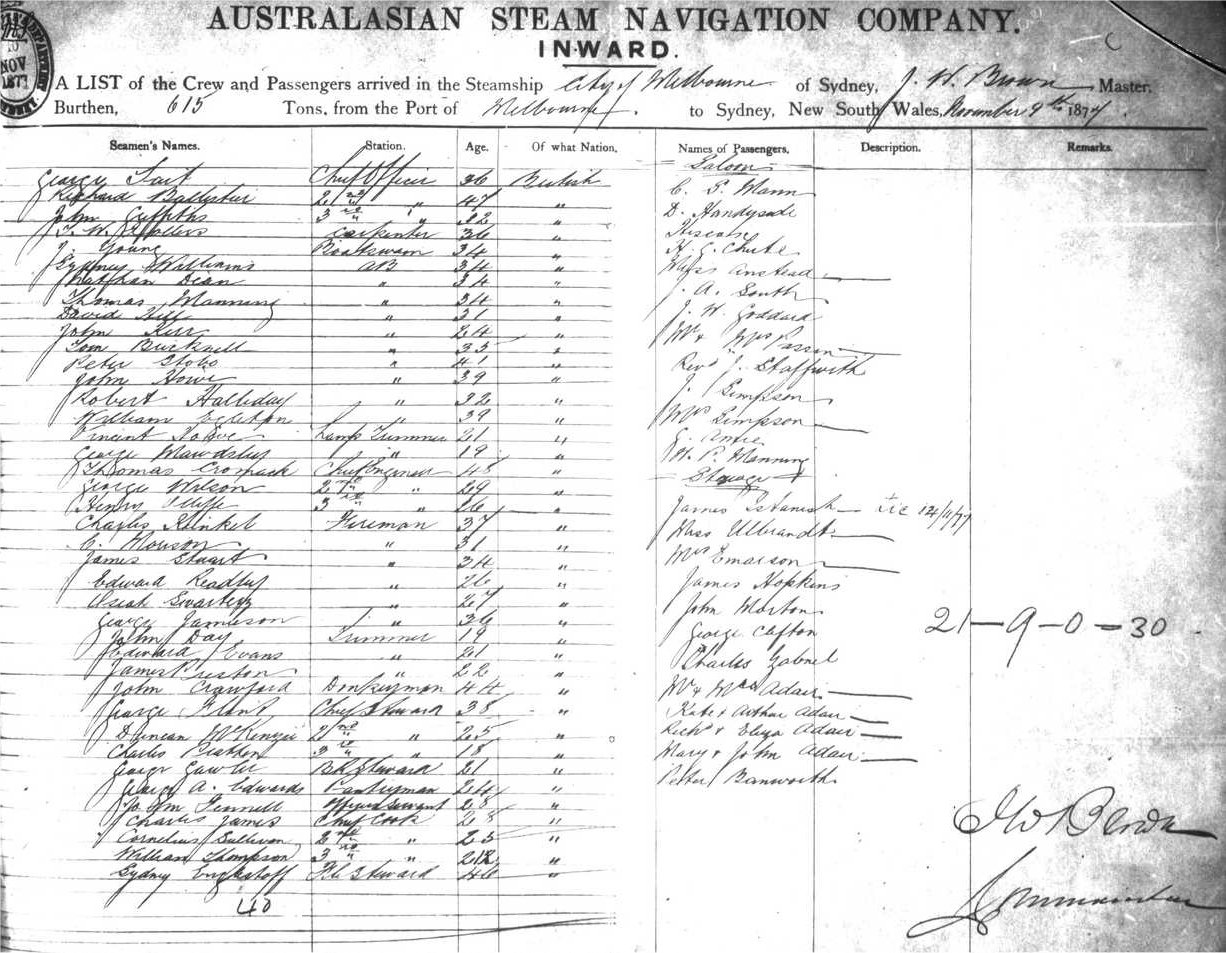 AUSTRALASIAN STEAM NAVIGATION COMPANY.
INWARD.
NOV
A LIST of the Crew and Passengers arrived in the Steamship City of Melbourne of Sydney, J. W. Brown Master,
Burthen, 615 Tons, from the Port of Melbourne to Sydney, New South Wales, November 9th 1877.
Seamen's Names. Station. Age. Of what Nation. Names of Passengers. Description. Remarks.
Saloon
George Chief Officer 36 British
C. S. Mann
Richard 2nd " 47 "
D. Handyside
John Griffiths 3rd " 32 "
J. W. Carpenter 36 "
H. C. Chute
J. Young Boatswain 34 "
Miss Anstead
Sydney Williams AB 34 "
Nathan Dean " 34 "
J. A. South
Thomas Manning " 34 "
J. W. Goddard
David Hill " 31 "
John Kerr " 24 "
Mr & Mrs
Tom Bucknell " 35 "
Revd J.
Peter " 41 "
John Howe " 39 "
J. Simpson
Robert Halliday " 32 "
Mrs Simpson
William " 39 "
Vincent Lamp Trimmer 21 "
George Mawdsley " 19 "
W. P. Manning
Thomas Cromack Chief Engineer 48 "
Steerage
George Wilson 2nd " 29 "
Henry 3rd " 26 "
James
Charles Kunkel Fireman 37 "
Miss Ulbrandt
C. Morison " 31 "
Mrs Emerson
James Stuart " 34 "
James Hopkins
Edward Readly " 26 "
" 27 "
John Morton
George Jamieson " 36 "
George Clafton 21-9-0-30
John Day Trimmer 19 "
Edward Evans " 21 "
Charles Gabriel
James Preston " 22 "
John Crawford Donkeyman 44 "
Mr & Mrs Adair
George Flint Chief Steward 38 "
Kate & Arthur Adair
Duncan McKenzie 2nd " 25 "
Richd & Eliza Adair
Charles 3rd " 18 "
Mary & John Adair
George Gawler Steward 21 "
Peter Banworth
George A. Edwards Pantryman 24 "
John Fennell Officers Servant 28 "
Charles James Chief Cook 28 "
J W Brown
Cornelius Sullivan 2nd " 25 "
William Thompson 3rd " "
Sydney Steward 46 "
Commander
40